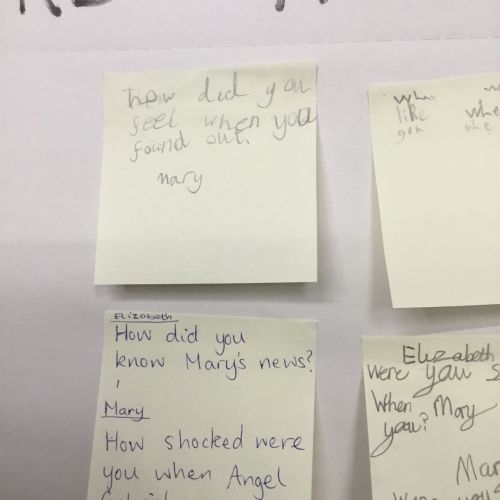 how did you
feel when you
found out.
mary
like
Elizabeth
How did you
know Mary's news?
Mary
How shocked were
you when Angel
Elizabeth
Were you s
When Mary
you?
Mar